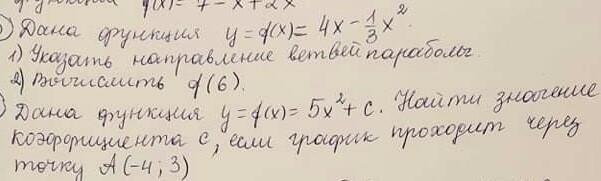 функция f(x) = 7 - x + 2x
) Дана функция y = f(x) = 4x - 1/3 x².
1) Указать направление ветвей параболы.
2) Вычислить f(6).
) Дана функция y = f(x) = 5x² + c. Найти значение
коэффициента c, если график проходит через
точку A(-4; 3)